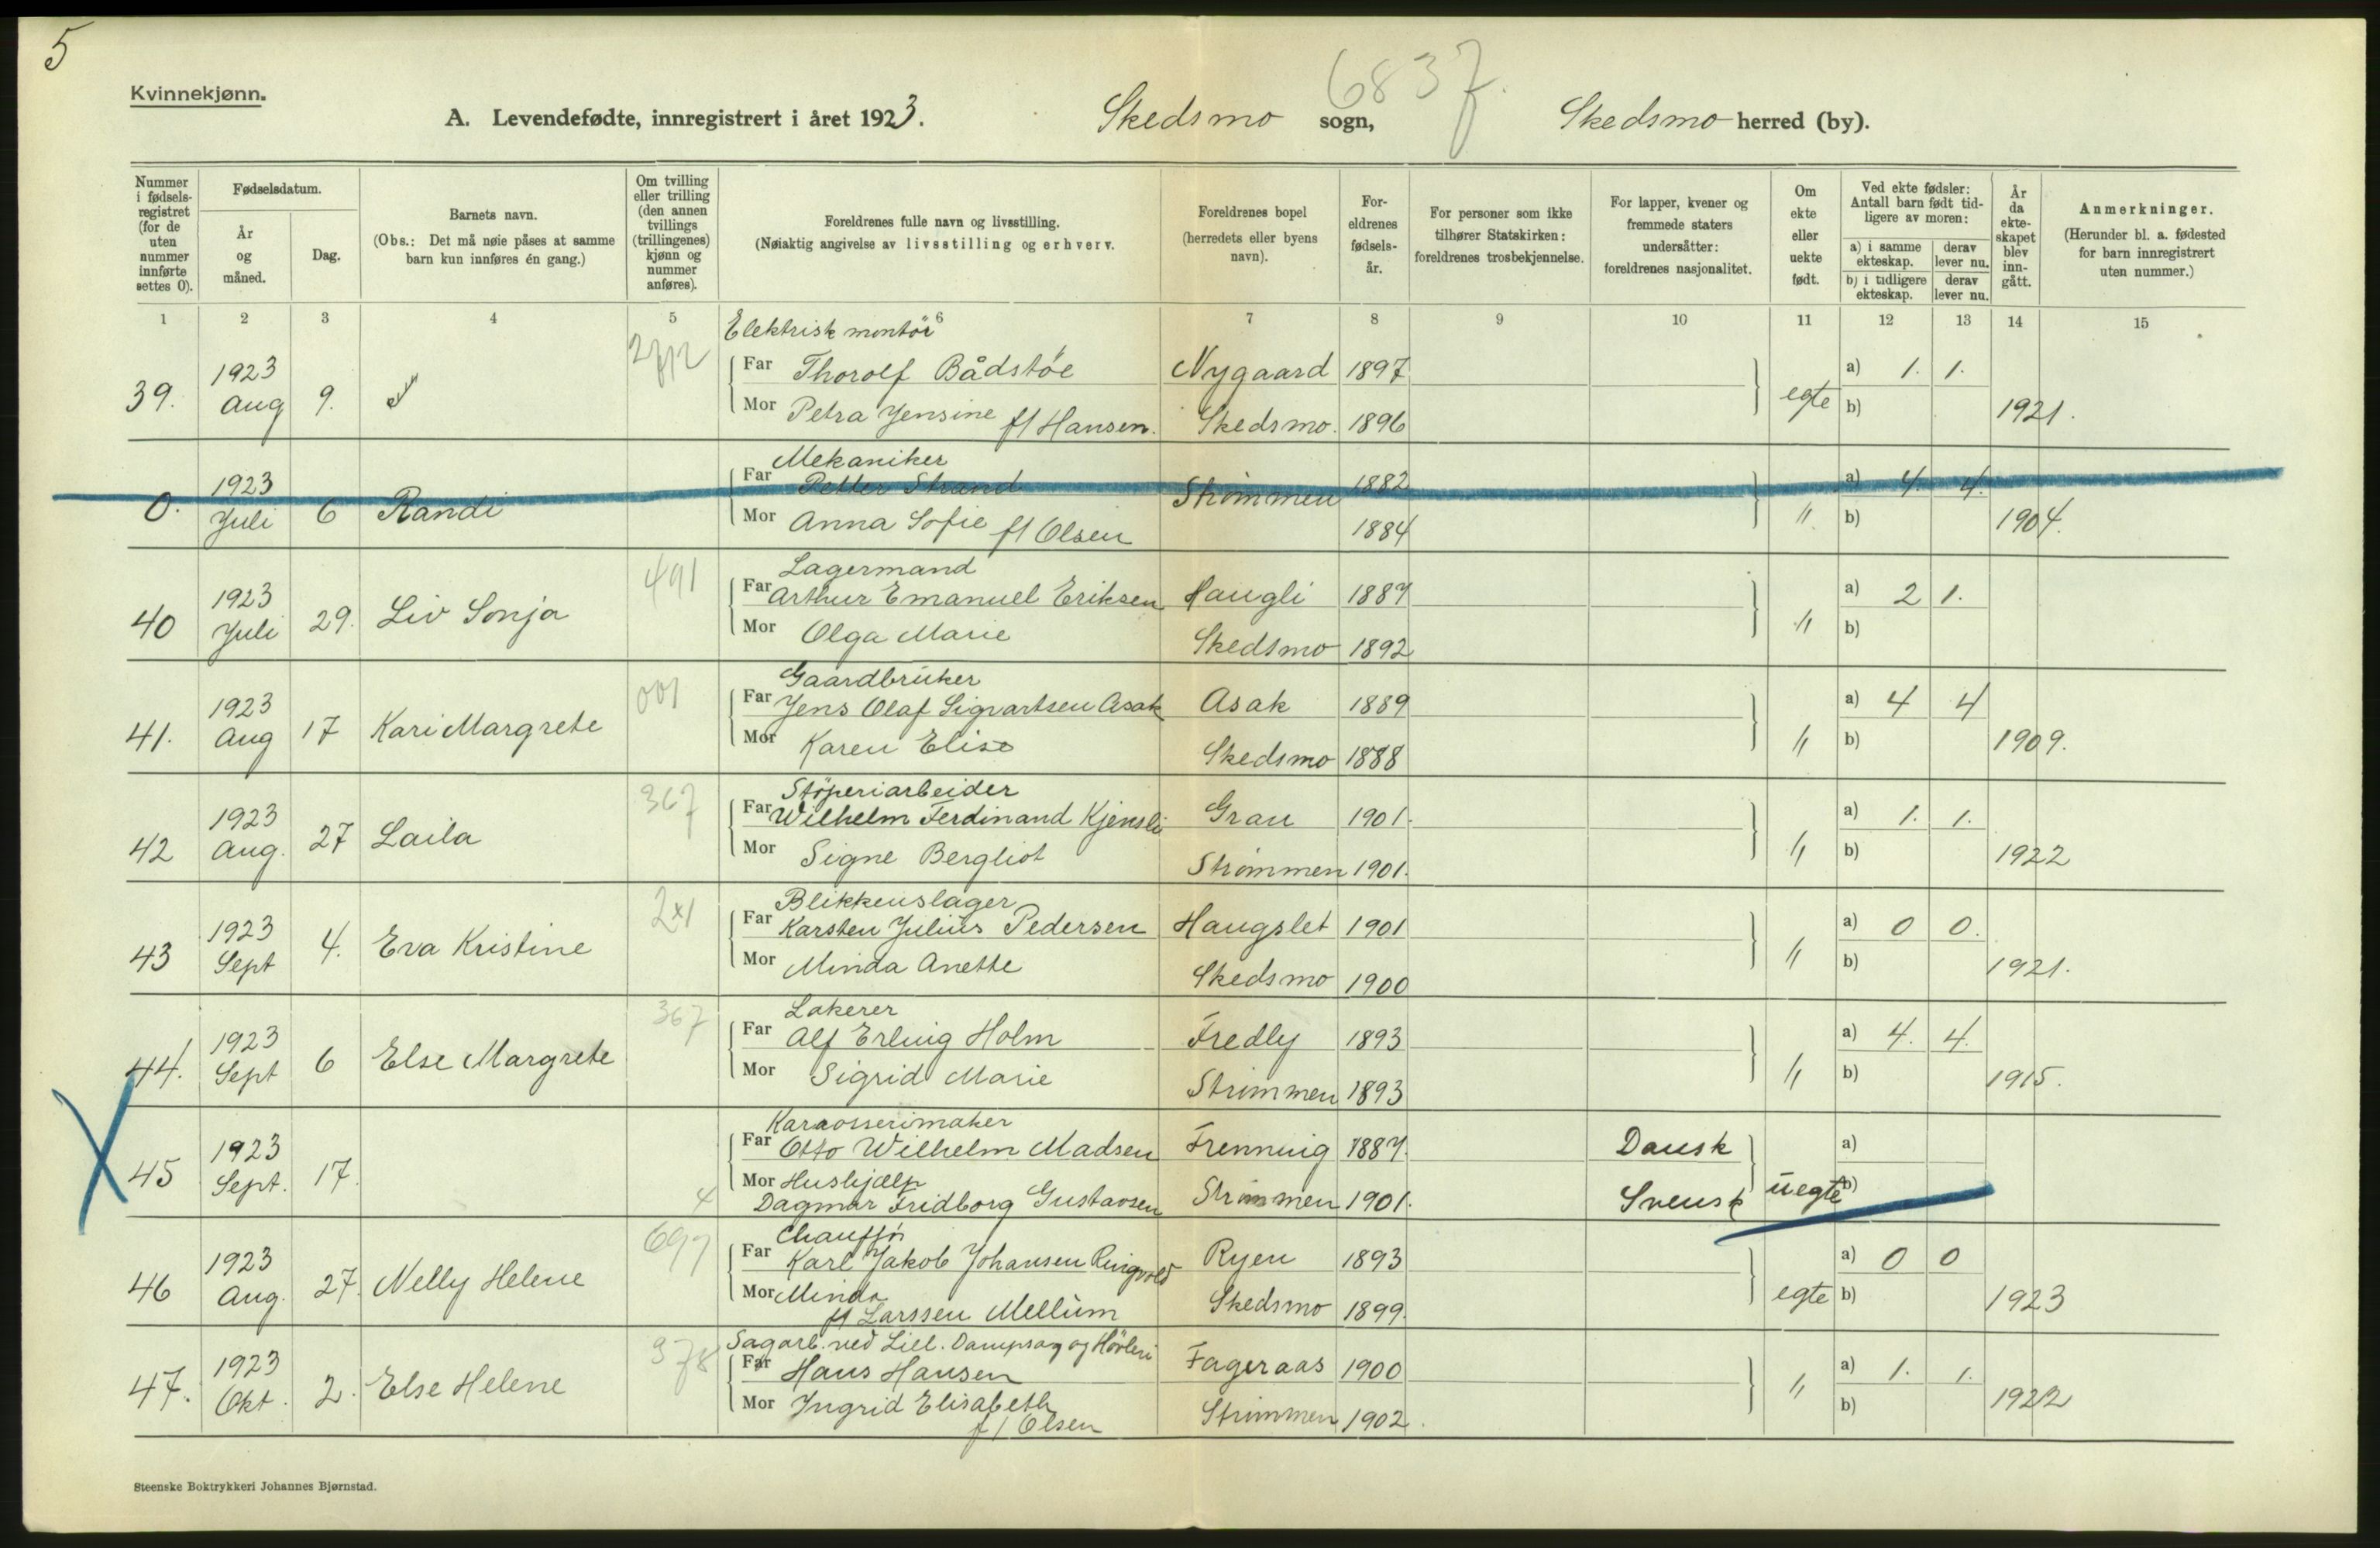 5
Kvinnekjønn.
6837.
A. Levendefødte, innregistrert i året 1923. Skedsmo sogn, Skedsmo herred (by).
Nummer i fødselsregistret (for de uten nummer innførte settes 0).
Fødselsdatum.
År og måned.
Dag.
Barnets navn.
(Obs.: Det må nøie påses at samme barn kun innføres én gang.)
Om tvilling eller trilling (den annen tvillings (trillingenes) kjønn og nummer anføres).
Foreldrenes fulle navn og livsstilling.
(Nøiaktig angivelse av livsstilling og erhverv.
Foreldrenes bopel (herredets eller byens navn).
Foreldrenes fødselsår.
For personer som ikke tilhører Statskirken: foreldrenes trosbekjennelse.
For lapper, kvener og fremmede staters undersåtter: foreldrenes nasjonalitet.
Om ekte eller uekte født.
Ved ekte fødsler: Antall barn født tidligere av moren:
a) i samme ekteskap. derav lever nu.
b) i tidligere ekteskap. derav lever nu.
År da ekteskapet blev inngått.
Anmerkninger.
(Herunder bl. a. fødested for barn innregistrert uten nummer.)
1 2 3 4 5 6 7 8 9 10 11 12 13 14 15
Elektrisk montör
39. 1923 Aug 9.
Far Thorolf Bådstöe Nygaard 1897 a) 1. 1.
Mor Petra Jensine f/ Hansen. Skedsmo. 1896 egte b) 1921.
Mekaniker
0. 1923 Juli 6 Randi
Far Petter Strand Strömmen 1882 a) 4. 4.
Mor Anna Sofie f/ Olsen 1884 " b) 1904.
491 Lagermand
40 1923 Juli 29. Liv Sonja
Far Arthur Emanuel Eriksen Haugli 1887 a) 2 1.
Mor Olga Marie Skedsmo 1892 " b)
001 Gaardbruker
41. 1923 Aug 17 Kari Margrete
Far Jens Olaf Sigvartsen Asak Asak 1889 a) 4 4
Mor Karen Elise Skedsmo 1888 " b) 1909.
367 Stöperiarbeider
42 1923 Aug. 27 Laila
Far Wilhelm Ferdinand Kjensli Gran 1901. a) 1. 1.
Mor Signe Bergliot Strömmen 1901. " b) 1922
2x1 Blikkenslager
43 1923 Sept 4. Eva Kristine
Far Karsten Julius Pedersen Haugslet 1901 a) 0 0.
Mor Minda Anette Skedsmo 1900 " b) 1921.
367 Lakerer
44. 1923 Sept 6 Else Margrete
Far Alf Erling Holm Fredly 1893 a) 4. 4.
Mor Sigrid Marie Strömmen 1893 " b) 1915.
Karaosserimaker
X 45 1923 Sept. 17.
Far Otto Wilhelm Madsen Frenning 1887. Dansk a)
4 Mor Hushjælp
Dagmar Fridborg Gustavsen Strömmen 1901. Svensk uegte b)
697 Chaufför
46 1923 Aug. 27. Nelly Helene
Far Karl Jakob Johansen Ringvold Ryen 1893 a) 0 0
Mor Minda f/ Larssen Mellum Skedsmo 1899. egte b) 1923
378 Sagarb. ved Lill. Dampsag og Hövleri
47. 1923 Okt. 2. Else Helene
Far Hans Hansen Fageraas 1900 a) 1. 1.
Mor Ingrid Elisabeth f/ Olsen Strömmen 1902. " b) 1922
Steenske Boktrykkeri Johannes Bjørnstad.